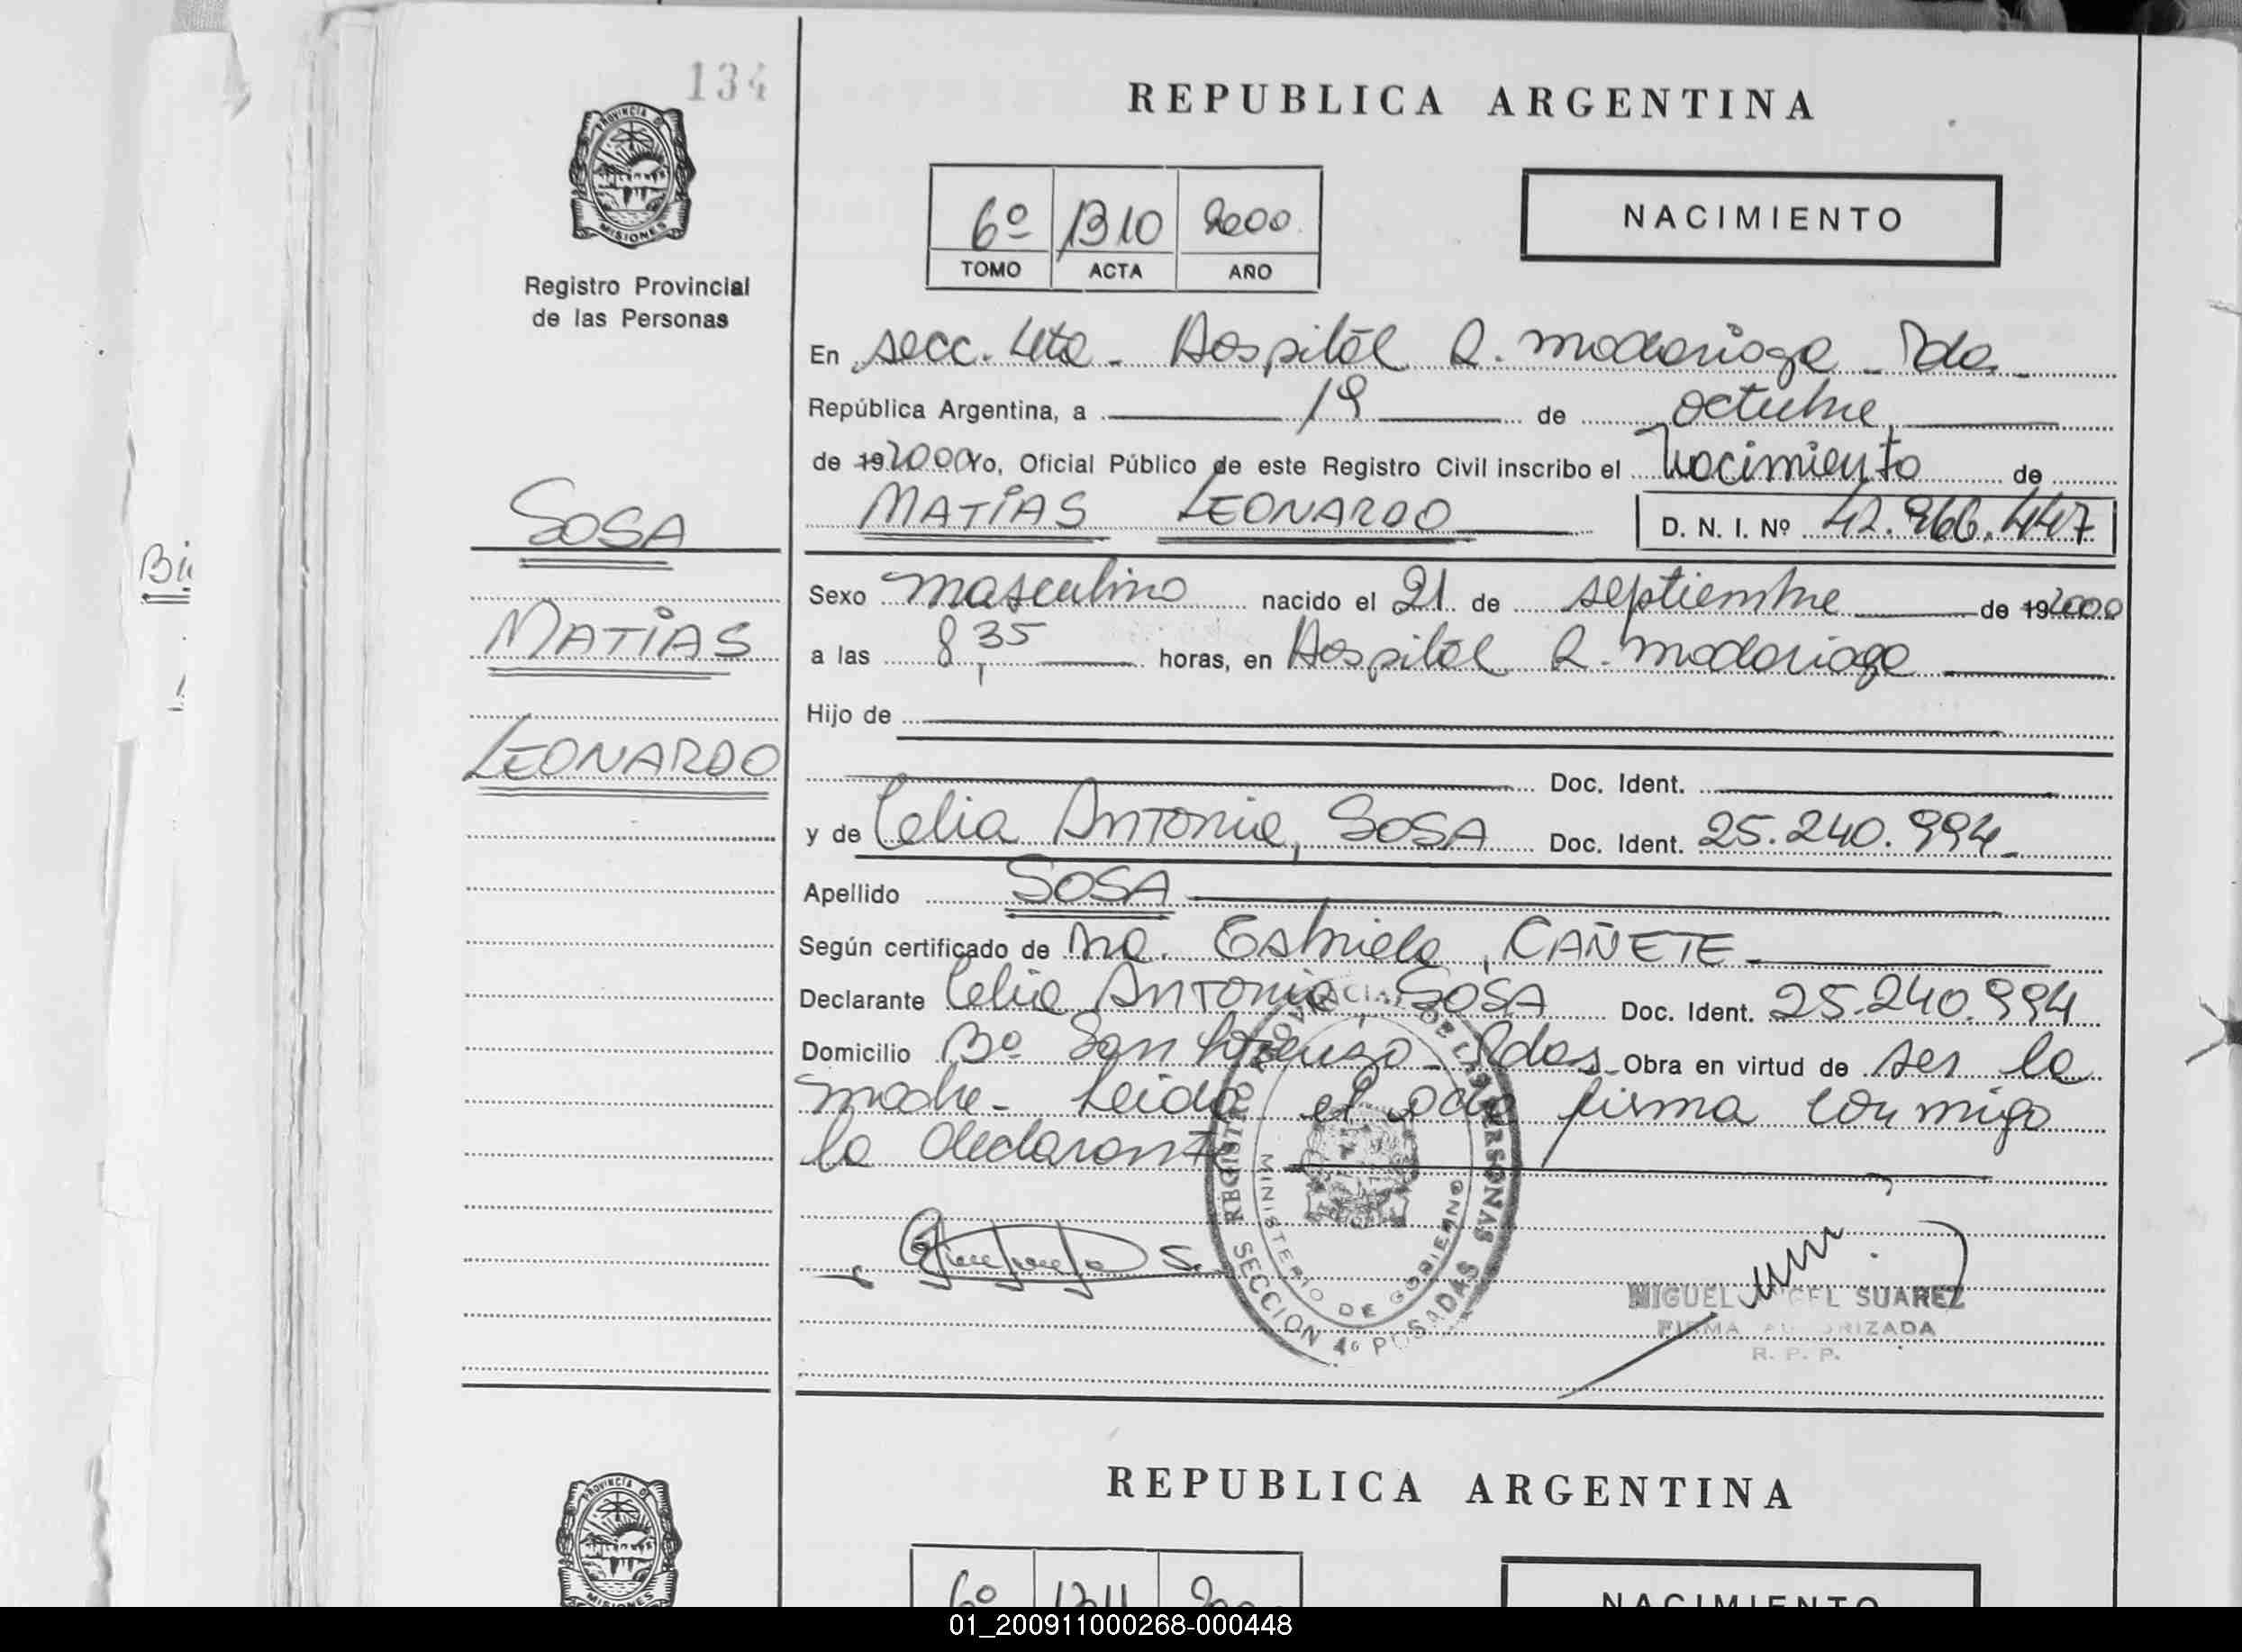 134
PROVINCIA DE
MISIONES
Registro Provincial
de las Personas
SOSA
MATIAS
LEONARDO
REPUBLICA ARGENTINA
6º 1310 2000
TOMO ACTA AÑO
NACIMIENTO
En secc. 4ta - Hospital R. Madariaga - Pdas -
República Argentina, a 19 de octubre
de 19 2000 Yo, Oficial Público de este Registro Civil inscribo el Nacimiento de
MATIAS LEONARDO D. N. I. Nº 42.966.447
Sexo masculino nacido el 21 de septiembre de 19 2000
a las 8,35 horas, en Hospital R. Madariaga
Hijo de
Doc. Ident.
y de Celia Antonia, SOSA Doc. Ident. 25.240.994-
Apellido SOSA
Según certificado de Ma. Gabriela, CAÑETE
Declarante Celia Antonia, SOSA Doc. Ident. 25.240.994
Domicilio Bº San Lorenzo - Pdas - Obra en virtud de ser la
madre - Leida el acta firma conmigo
la declarante
REGISTRO PROVINCIAL DE LAS PERSONAS
MINISTERIO DE GOBIERNO
SECCION 4º POSADAS
MIGUEL ANGEL SUAREZ
FIRMA AUTORIZADA
R. P. P.
REPUBLICA ARGENTINA
PROVINCIA DE
MISIONES
6º 1311 2000
NACIMIENTO
01_200911000268-000448